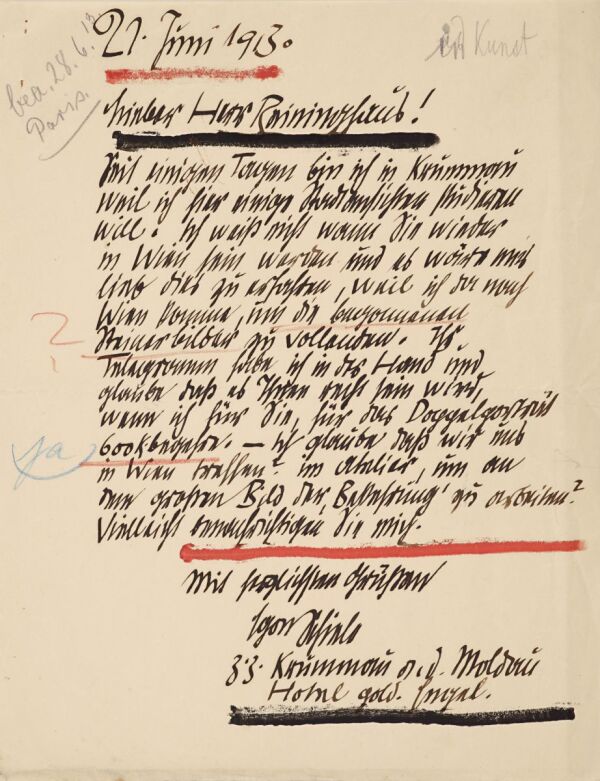 21. Juni 1913.
bea. 28. 6. 13
Paris.
Kunst
Lieber Herr Reininghaus!
Seit einigen Tagen bin ich in Krummau
weil ich hier einige Stadtansichten studieren
will. Ich weiß nicht wann Sie wieder
in Wien sein werden und es wäre mir
lieb dies zu erfahren, weil ich da nach
Wien komme, um die begonnenen
?
Steinerbilder zu vollenden. Ihr
Telegramm habe ich in der Hand und
glaube daß es Ihnen recht sein wird,
wenn ich für Sie, für das Doppelporträt
ja
600 K begehre. – ich glaube daß wir uns
in Wien treffen? im Atelier, um an
dem großen Bild der ‚Bekehrung' zu arbeiten?
Vielleicht benachrichtigen Sie mich.
Mit herzlichsten Grüßen
Egon Schiele
z. z. Krummau a. d. Moldau
Hotel gold. Engel.